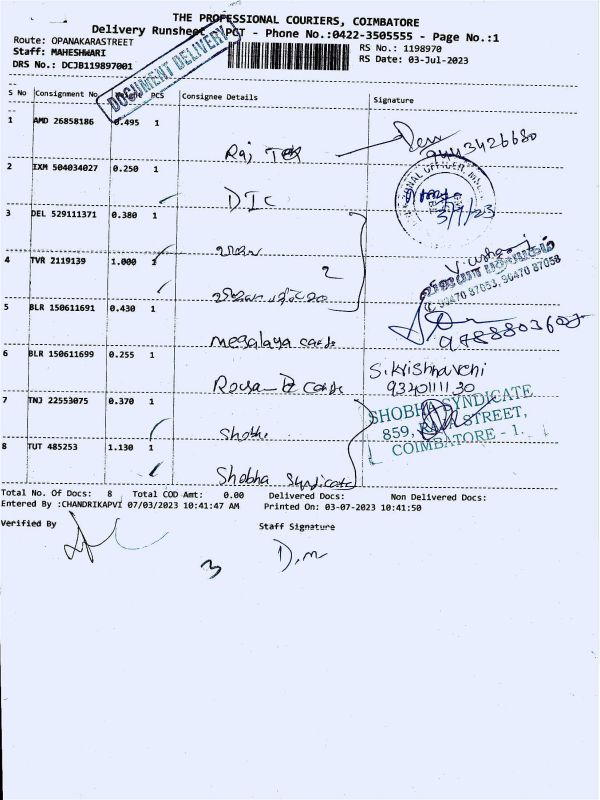 THE PROFESSIONAL COURIERS, COIMBATORE
Delivery Runsheet PCT - Phone No.:0422-3505555 - Page No.:1
Route: OPANAKARASTREET
RS No.: 1198970
Staff: MAHESHWARI
RS Date: 03-Jul-2023
DRS No.: DCJB119897001
DOCUMENT DELIVERY
S No Consignment No PCS Consignee Details Signature
1 AMD 26858186 0.495 1
Raj Tex
9443426680
2 IXM 504034027 0.250 1
DIC
3/7/23
3 DEL 529111371 0.380 1
4 TVR 2119139 1.000 1
2
90470 87053, 90470 87058
5 BLR 150611691 0.430 1
megalaya cards
6 BLR 150611699 0.255 1
cards
S. Krishnaveni
7 TNJ 22553075 0.370 1
Shobha
SHOBHA SYNDICATE
859, RAJA STREET,
COIMBATORE - 1.
8 TUT 485253 1.130 1
Shobha Syndicate
Total No. Of Docs: 8 Total COD Amt: 0.00 Delivered Docs: Non Delivered Docs:
Entered By :CHANDRIKAPVI 07/03/2023 10:41:47 AM Printed On: 03-07-2023 10:41:50
Verified By
Staff Signature
3